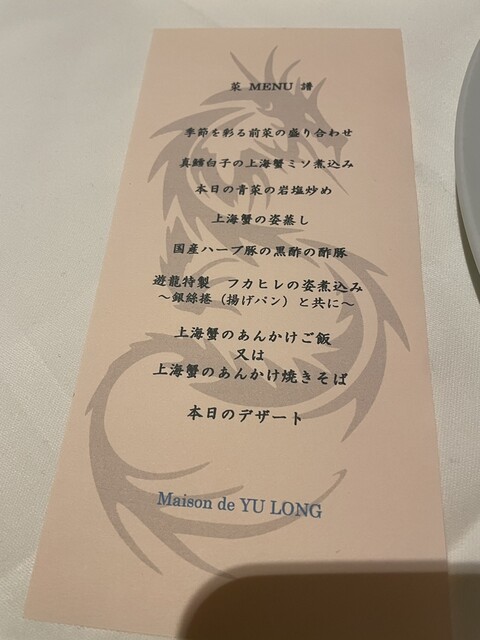 菜 MENU 譜
季節を彩る前菜の盛り合わせ
真鱈白子の上海蟹ミソ煮込み
本日の青菜の岩塩炒め
上海蟹の姿蒸し
国産ハーブ豚の黒酢の酢豚
遊龍特製 フカヒレの姿煮込み
～銀絲捲（揚げパン）と共に～
上海蟹のあんかけご飯
又は
上海蟹のあんかけ焼きそば
本日のデザート
Maison de YU LONG